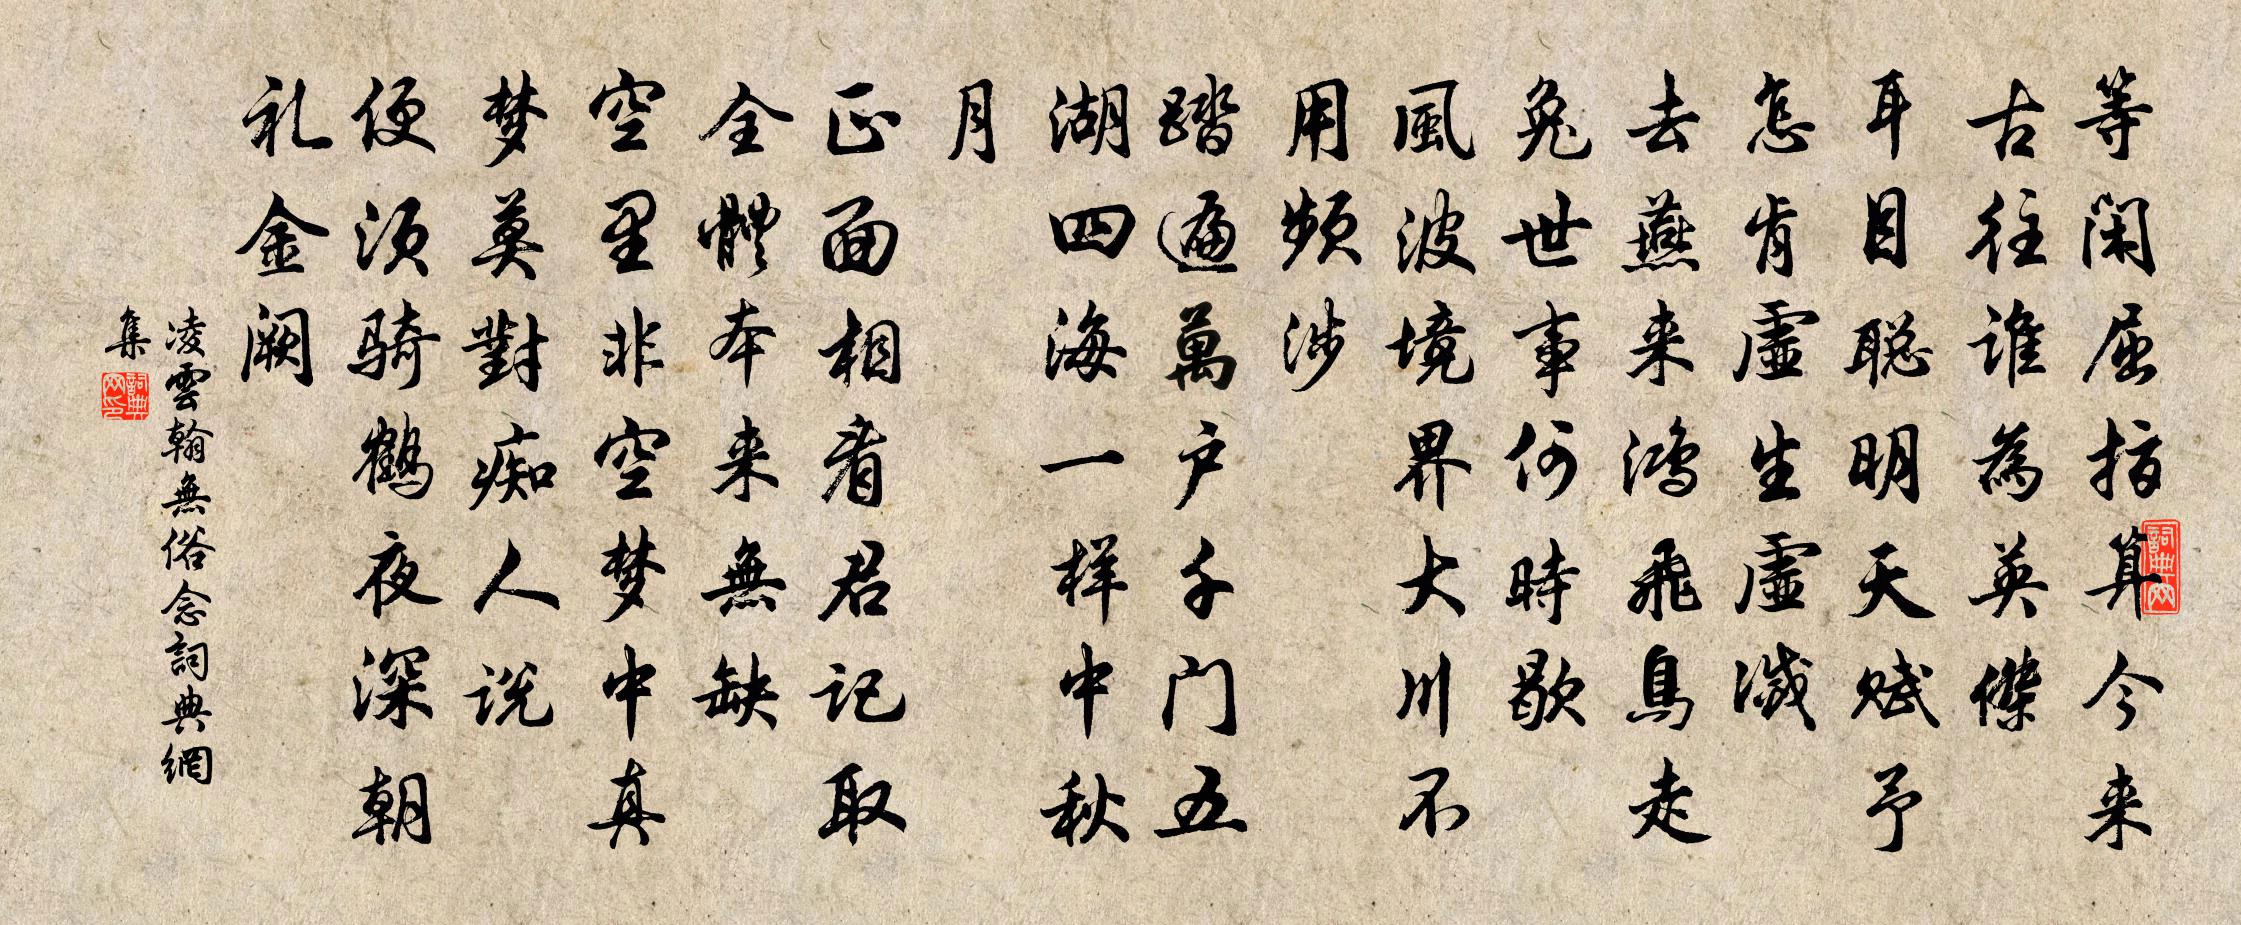 等閑屈指算今来
古往谁為英傑
耳目聪明天赋予
怎肯虛生虛滅
去燕来鴻飛烏走
兔世事何時歇
風波境界大川不
用频涉
踏遍萬户千门五
湖四海一样中秋
月
正面相看君记取
全體本来無缺
空里非空梦中真
梦莫對痴人说
便须骑鹤夜深朝
礼金阙
凌雲翰無俗念詞典網
集
詞典网
詞典网印